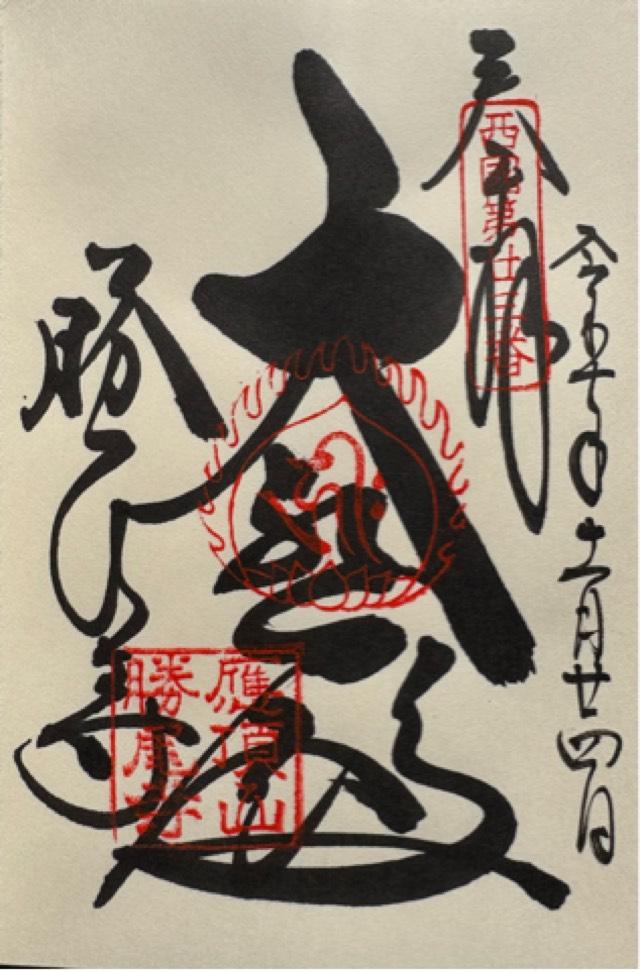 令和年十一月廿四日
奉拝
西國第廿三番
大悲殿
勝尾寺
應頂山
勝尾寺